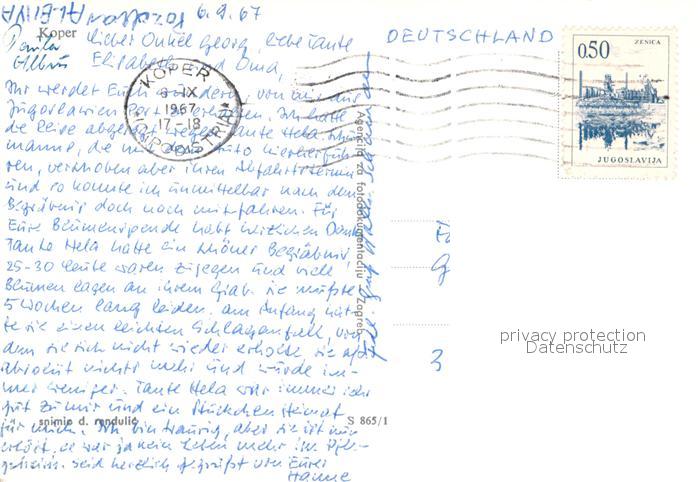 6.9.67
Koper
Lieber Onkel Georg, liebe Tante
Elisabeth und Oma,
Ihr werdet Euch wundern, von mir aus
Jugoslawien Post zu erhalten. Ich hatte
die Reise abgesagt wegen Tante Hela
manns, die mit dem Auto hierherfuh-
ren, verschoben aber ihren Abfahrtstermin
und so konnte ich unmittelbar nach dem
Begräbnis doch noch mitfahren. Für
Eure Blumenspende habt herzlichen Dank
Tante Hela hatte ein schönes Begräbnis,
25-30 Leute waren zugegen und viele
Blumen lagen an ihrem Grab. Sie mußte
5 Wochen lang leiden. Am Anfang hat-
te sie einen leichten Schlaganfall, von
dem sie sich nicht wieder erholte, sie aß
absolut nichts mehr und wurde im-
mer weniger. Tante Hela war immer sehr
gut zu mir und ein Stückchen Heimat
für mich. Ich bin traurig, aber sie ist nun
erlöst, es war ja kein Leben mehr im Pfle-
geheim. Seid herzlich gegrüßt von Eurer
Hanne
snimio d. rendulić
S 865/1
Agencija za fotodokumentaciju - Zagreb
DEUTSCHLAND
KOPER
IX
1967
17-18
CAPODISTRIA
0.50
ZENICA
JUGOSLAVIJA
privacy protection
Datenschutz